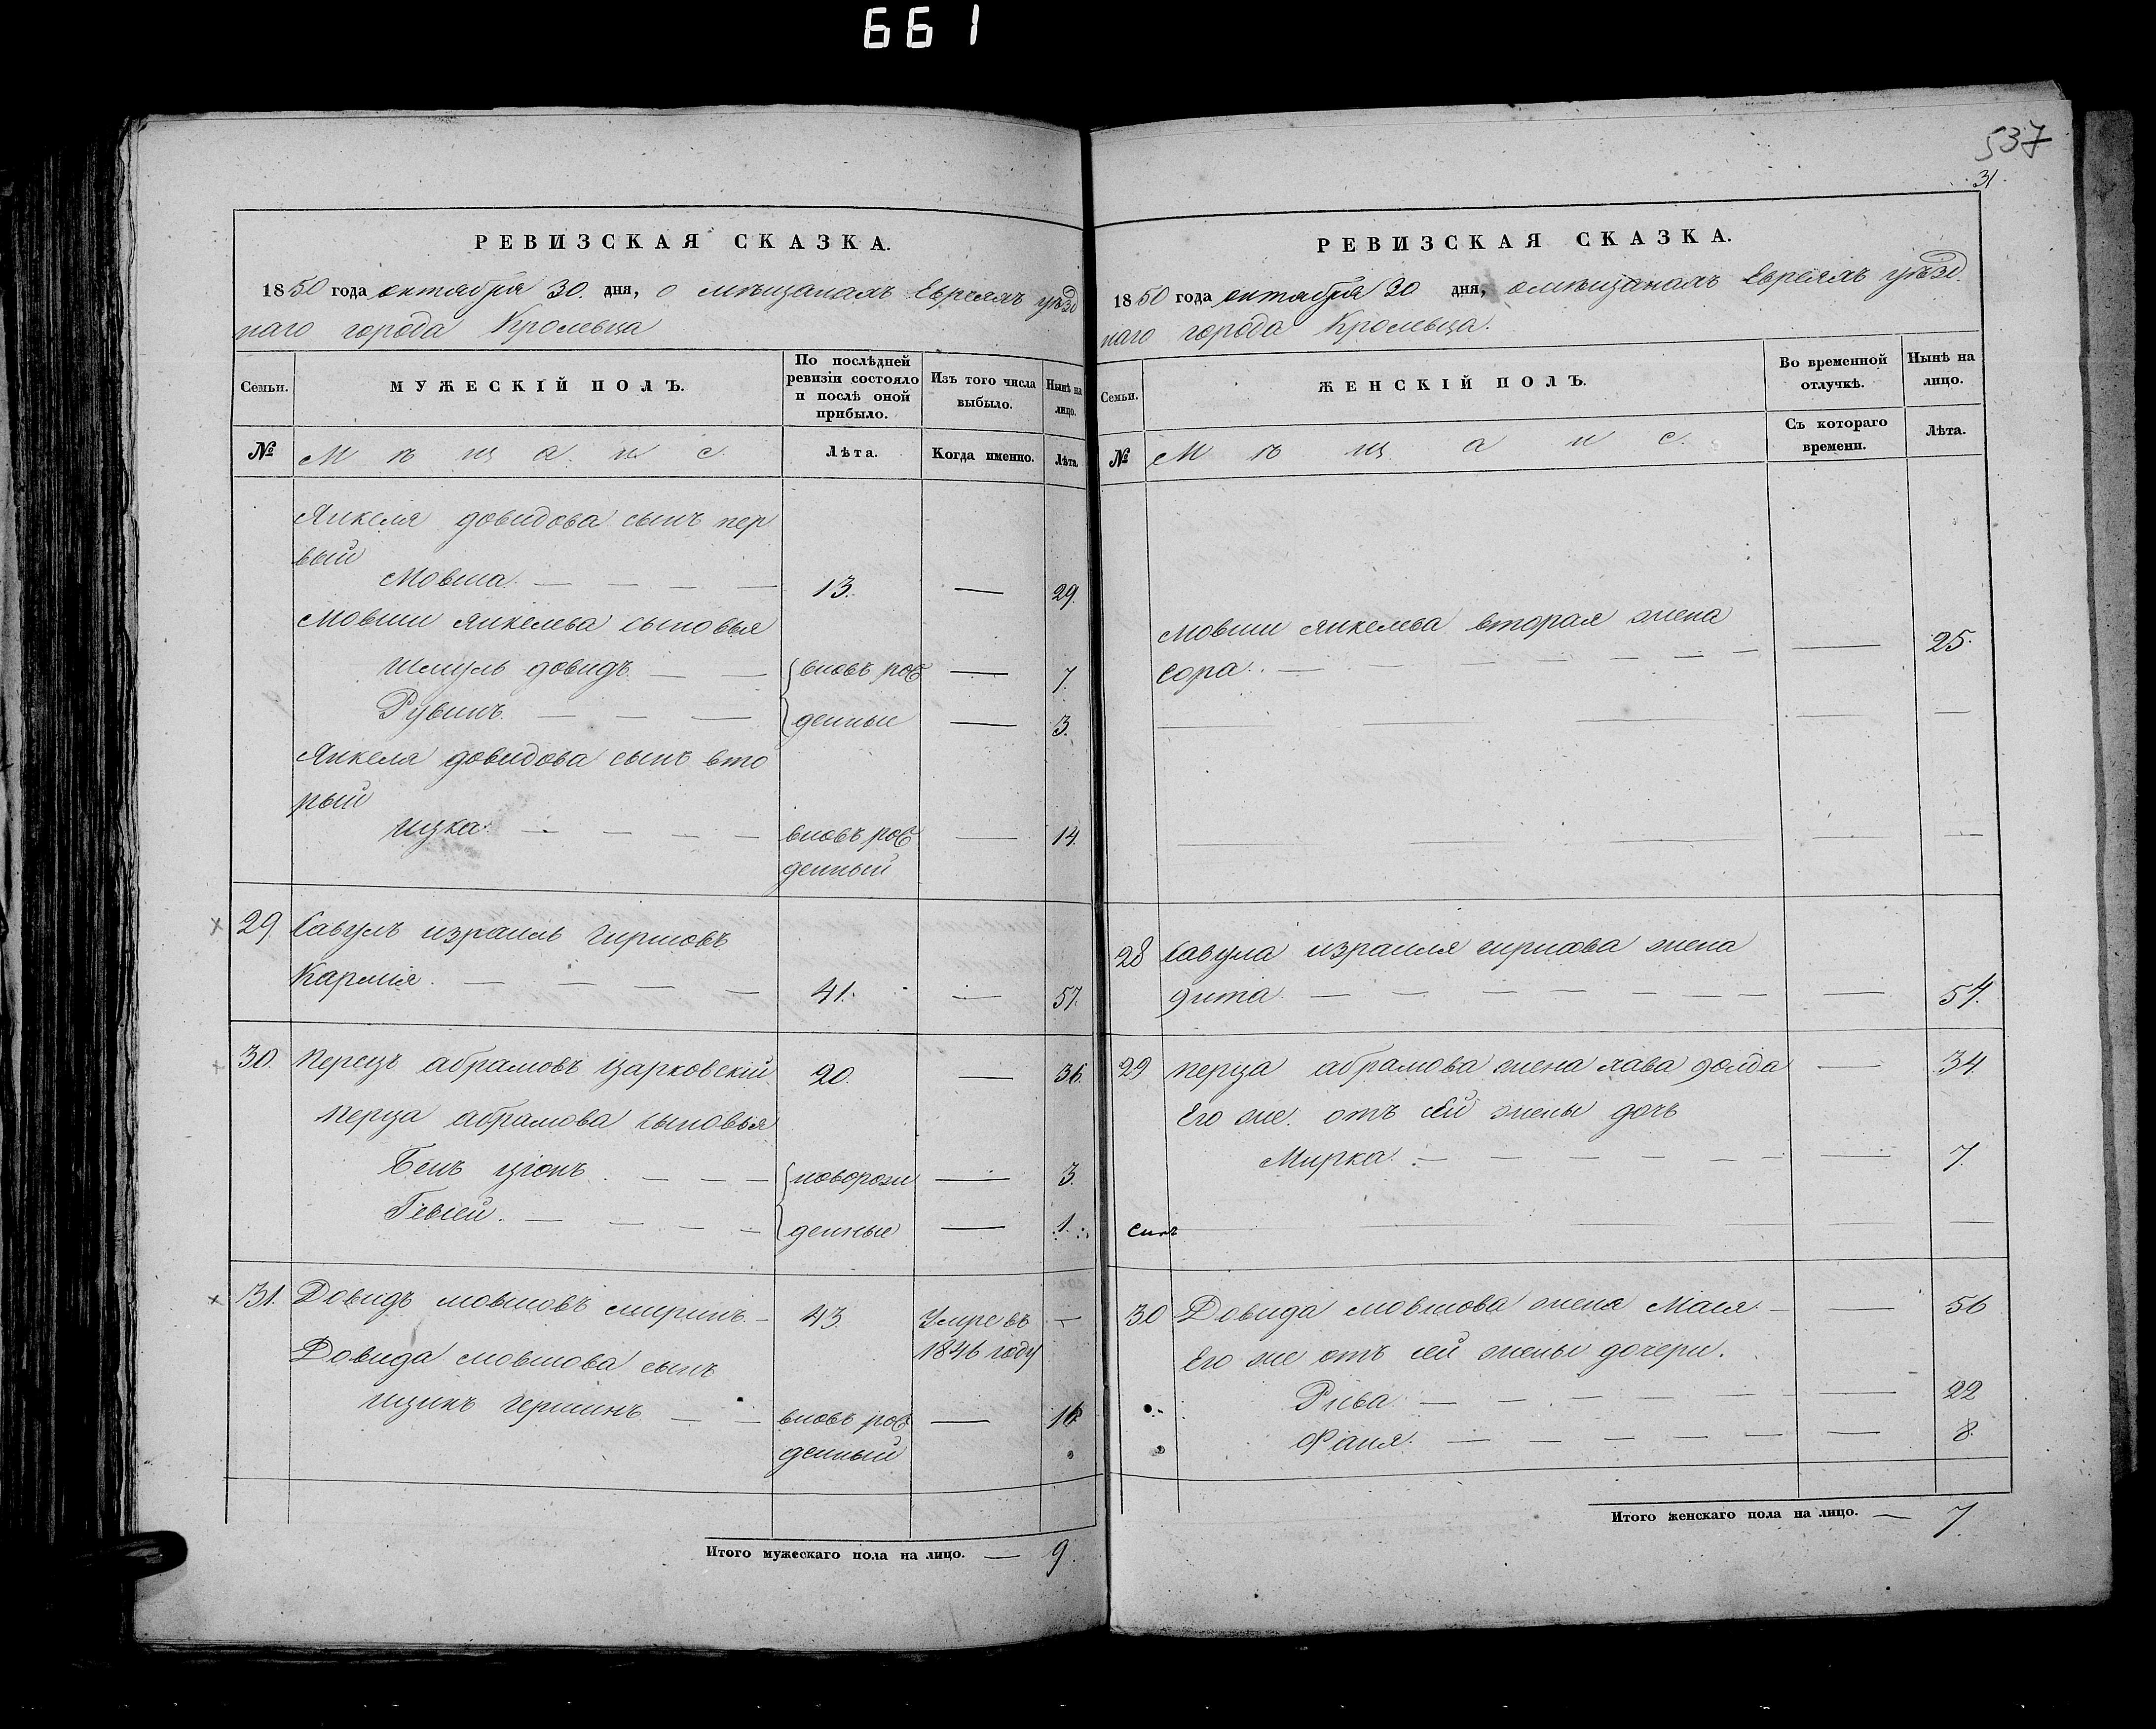 661
537
31
РЕВИЗСКАЯ СКАЗКА.
1850 года октября 30. дня, о мѣщанахъ Евреяхъ уѣзд
наго города Кролевца
Семьи.
МУЖЕСКІЙ ПОЛЪ.
По послѣдней ревизіи состояло и послѣ оной прибыло.
Изъ того числа выбыло.
Нынѣ на лицо.
№
Мѣщане.
Лѣта.
Когда именно.
Лѣта.
Янкеля довидова сынъ пер
вый
Мовша. — — — — 13. — 29.
Мовши янкелева сыновья
Шмуль довидъ. — — вновь рож — 7.
Рувинъ. — — — денные — 3.
Янкеля довидова сынъ вто
рый
Ицка. — — — — вновь рож — 14.
денный
29. Савулъ израиль Гиршовъ
Кармія. — — — — 41. — 57.
30. Перецъ абрамовъ Царковскій. 20. — 36.
Перца абрамова сыновья
Бенъ ціонъ. — — — новорож — 3.
Гевсей. — — — — денные — 1.
31. Довидъ мовшовъ смиринъ. — 43. Умре въ —
1846 году
Довида мовшова сынъ
Ицикъ гершинъ — — вновь рож — 16
денный
Итого мужескаго пола на лицо. — 9.
РЕВИЗСКАЯ СКАЗКА.
1850 года октября 30 дня, о мѣщанахъ Евреяхъ уѣзд
наго города Кролевца.
Семьи.
ЖЕНСКІЙ ПОЛЪ.
Во временной отлучкѣ.
Нынѣ на лицо.
№
Мѣщане.
Съ котораго времени.
Лѣта.
Мовши янкелева вторая жена
Сора. — — — — — — — 25.
28 Савула израиля гиршова жена
дита. — — — — — — — 54.
29 Перца абрамова жена хава голда — 34.
Его же. отъ сей жены дочь
Мирка. — — — — — — — 7.
30 Довида мовшова жена Мася. — — 56
Его же отъ сей жены дочери.
Рива. — — — — — — 22
Фаня. — — — — — — 8.
Итого женскаго пола на лицо. — 7